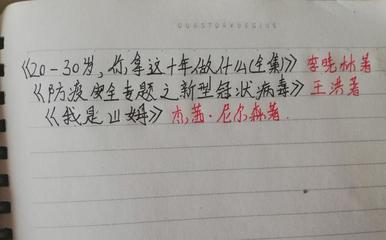 《20-30岁,你拿这十年做什么(全集)》 李晓林著
《防疫安全专题之新型冠状病毒》 王洪著
《我是山姆》 杰茜·尼尔森著